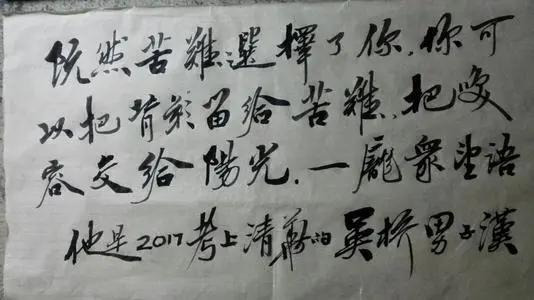 既然苦難選擇了你,你可
以把背影留給苦難,把咲
容交給陽光.一龐眾望語
他是2017考上清華的吳橋男子漢